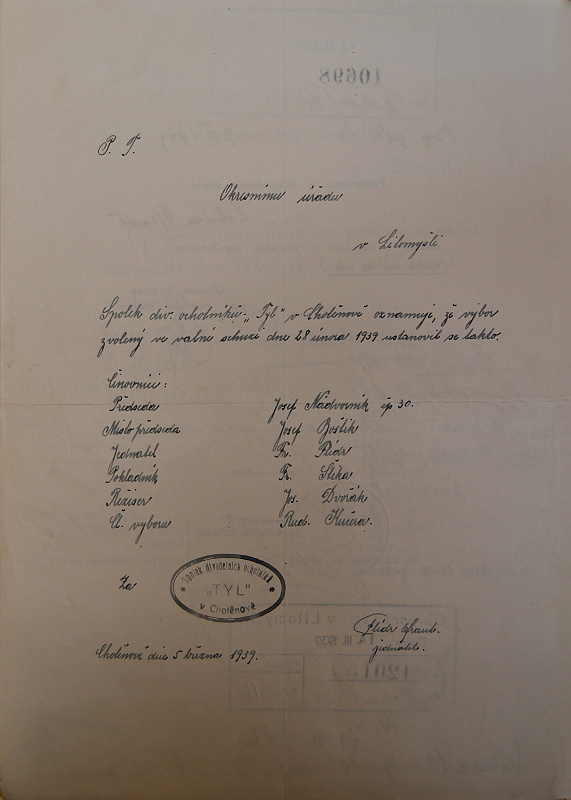 P. T.
Okresnímu úřadu
v Litomyšli
Spolek div. ochotníků „Tyl" v Chotěnově oznamuje, že výbor
zvolený ve valné schuzi dne 28 února 1939 ustanovil se takto.
Činovníci:
Předseda Josef Nádvorník čp 30.
Místopředseda Josef Boštík
Jednatel Fr. Flídr
Pokladník Fr. Štika
Režiser Jos. Dvořák
Čl. výboru Rud. Kučera.
Za
Spolek divadelních ochotníků
"TYL"
v Chotěnově
Flídr Frant.
jednatel.
Chotěnov dne 5 března 1939.
10698